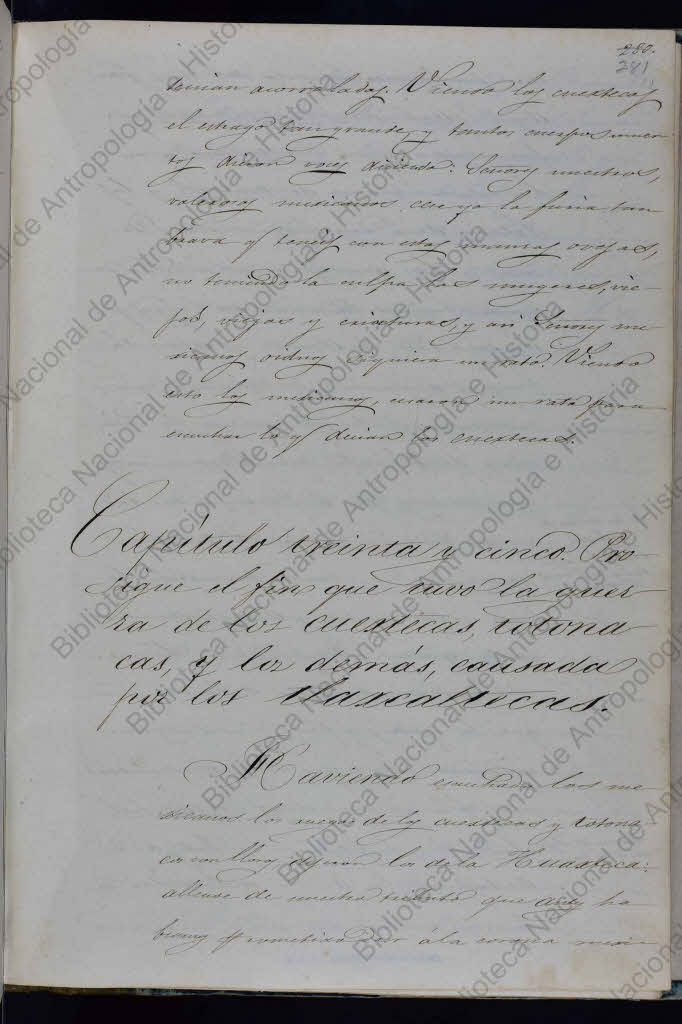 280.
281
tenian acorraladas. Viendo los cuextecas
el estrago tan grande, y tantos cuerpos muer-
tos dieron voces diciendo: Señores nuestros,
valerosos mexicanos, cese ya la furia tan
brava q̃ teneis con estas mansas ovejas,
no teniendo la culpa las mugeres, vie-
jos, viejas y criaturas, y asi Señores me-
xicanos oidnos siquiera un rato. Viendo
esto los mexicanos, cesaron un rato para
escuchar lo q̃ decian los cuextecas.
Capítulo treinta y cinco. Pro-
sigue el fin que tuvo la guer-
ra de los cuextecas, totona
cas, y los demás, causada
por los tlaxcaltecas.
Haviendo escuchado los me-
xicanos los ruegos de los cuextecas y totona
cas con lloros dejeron los de la Huaxteca:
allense de nuestro tributo que
biamos prometido dar á la corona mexi-
Biblioteca Nacional de Antropología e Historia